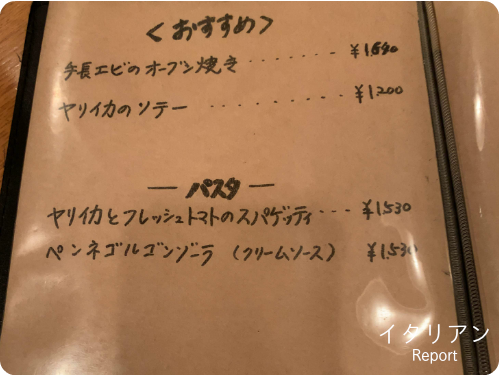 <おすすめ>
手長エビのオーブン焼き ········
ヤリイカのソテー ·········· ¥1200
— パスタ —
ヤリイカとフレッシュトマトのスパゲッティ··· ¥1530
ペンネゴルゴンゾーラ (クリームソース) ¥1,530
イタリアン
Report